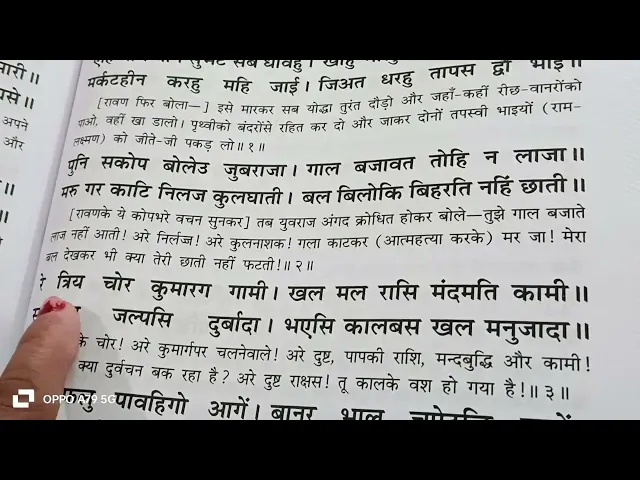 मारी॥
मर्कटहीन करहु महि जाई। जिअत धरहु तापस द्वौ भाई॥
[रावण फिर बोला—] इसे मारकर सब योद्धा तुरंत दौड़ो और जहाँ-कहीं रीछ-वानरोंको
अपने पाओ, वहीं खा डालो। पृथ्वीको बंदरोंसे रहित कर दो और जाकर दोनों तपस्वी भाइयों (राम-
और लक्ष्मण) को जीते-जी पकड़ लो॥१॥
पुनि सकोप बोलेउ जुबराजा। गाल बजावत तोहि न लाजा॥
मरु गर काटि निलज कुलघाती। बल बिलोकि बिहरति नहिं छाती॥
[रावणके ये कोपभरे वचन सुनकर] तब युवराज अंगद क्रोधित होकर बोले—तुझे गाल बजाते
लाज नहीं आती! अरे निर्लज्ज! अरे कुलनाशक! गला काटकर (आत्महत्या करके) मर जा! मेरा
बल देखकर भी क्या तेरी छाती नहीं फटती!॥२॥
रे त्रिय चोर कुमारग गामी। खल मल रासि मंदमति कामी॥
जल्पसि दुर्बादा। भएसि कालबस खल मनुजादा॥
के चोर! अरे कुमार्गपर चलनेवाले! अरे दुष्ट, पापकी राशि, मन्दबुद्धि और कामी!
क्या दुर्वचन बक रहा है? अरे दुष्ट राक्षस! तू कालके वश हो गया है!॥३॥
पावहिगो आगें। बानर भालु
OPPO A79 5G